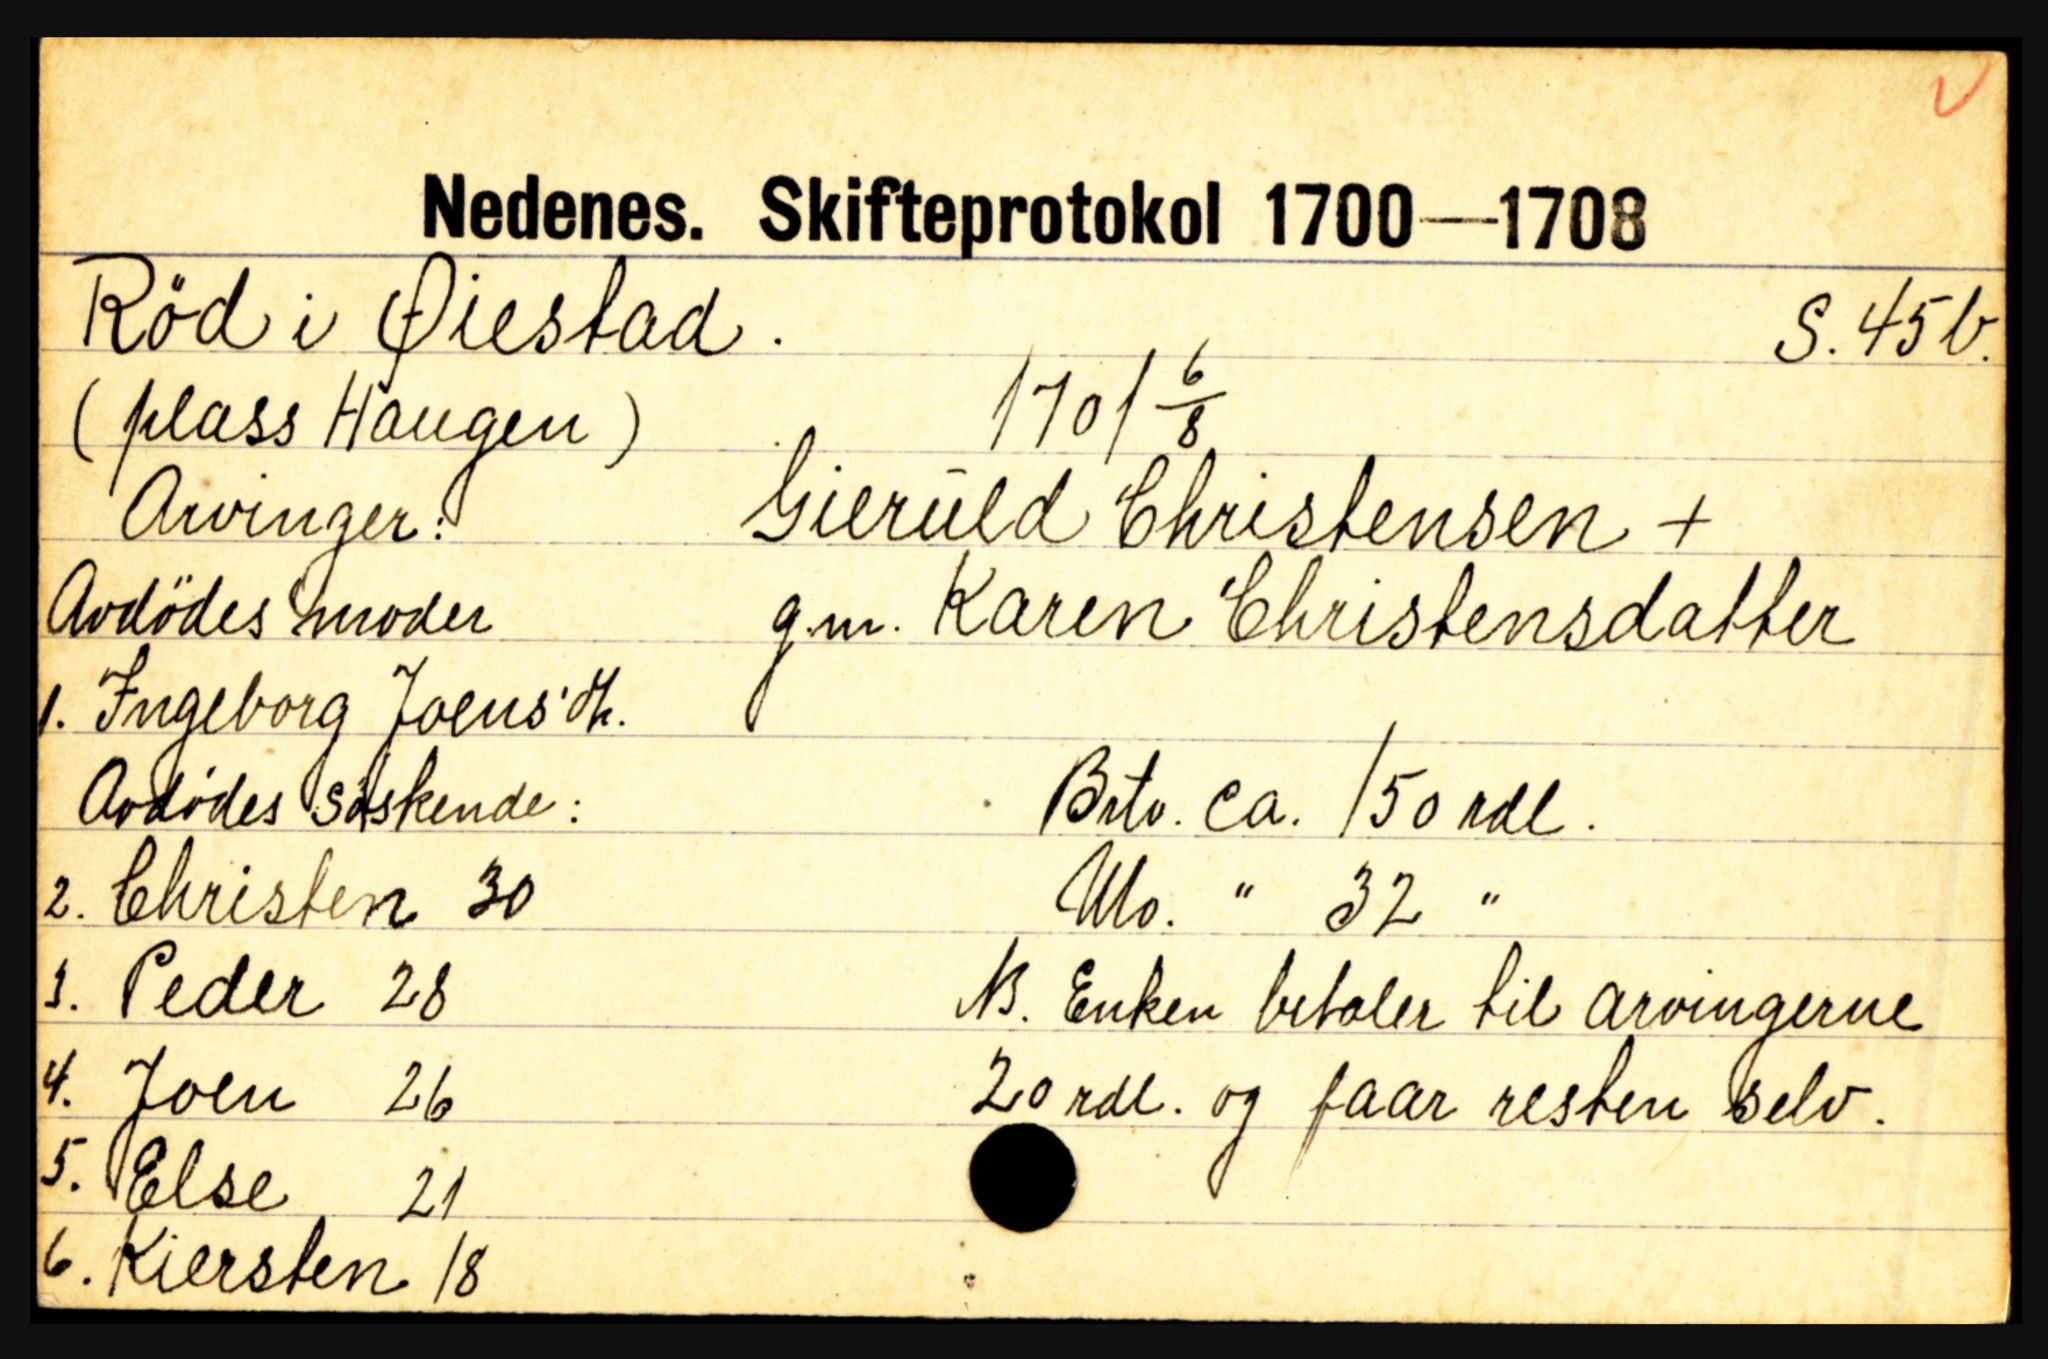 Nedenes. Skifteprotokol 1700—1708
Röd i Øiestad.
S. 45b.
(plass Haugen)
1701 6/8
Arvinger:
Gierŭld Christensen +
Avdödes moder
g.m. Karen Christensdatter
1. Ingeborg Joensdtr.
Avdödes söskende:
Brto. ca. 150 rdl.
2. Christen 30
Nto. " 32 "
3. Peder 28
NB. Enken betaler til arvingerne
4. Joen 26
20 rdl. og faar resten selv.
5. Else 21
6. Kiersten 18